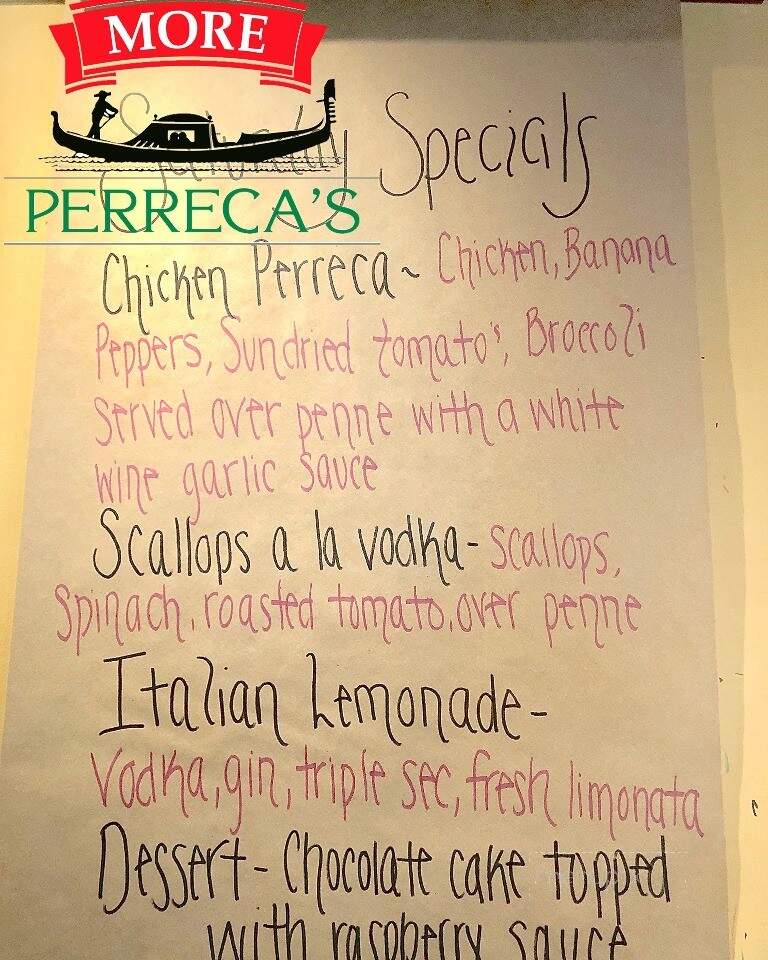 MORE
PERRECA'S
Saturday Specials
Chicken Perreca~ Chicken, Banana
Peppers, Sundried tomato's, Broccoli
served over penne with a white
wine garlic sauce
Scallops a la vodka- scallops,
Spinach, roasted tomato, over penne
Italian Lemonade-
Vodka, gin, triple sec, fresh limonata
Dessert- Chocolate cake topped
with raspberry sauce